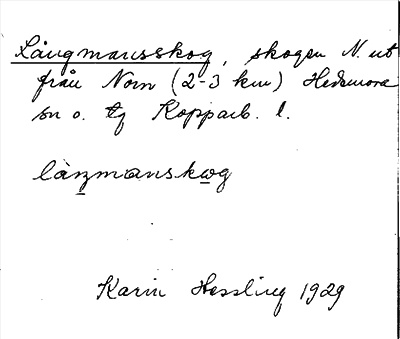 Långmansskog, skogen N. ut
från Norn (2-3 km) Hedemora
sn o. tg Kopparb. l.
làŋmanskωg
Karin Hessling 1929